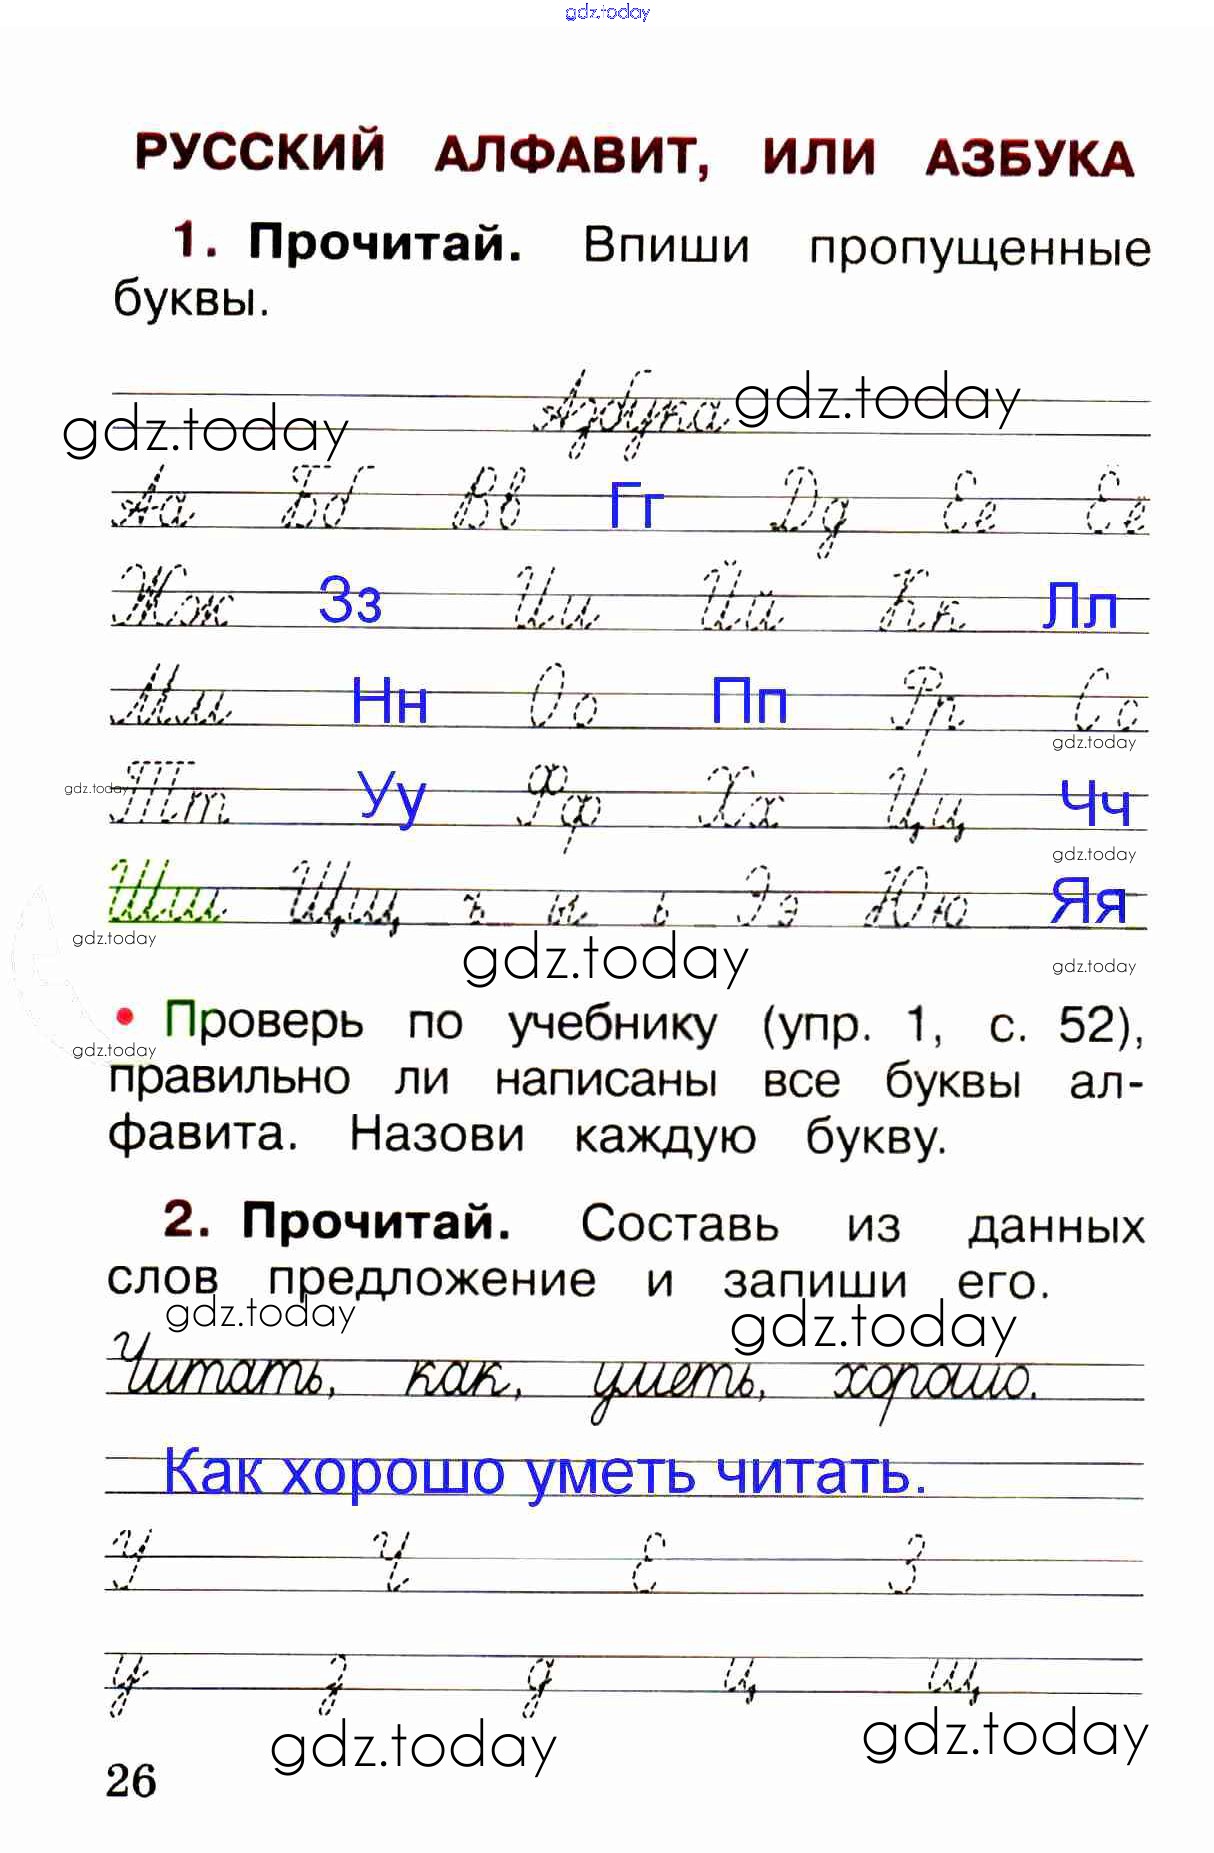 gdz.today
РУССКИЙ АЛФАВИТ, ИЛИ АЗБУКА
1. Прочитай. Впиши пропущенные
буквы.
Азбука gdz.today
gdz.today
Аа Бб Вв Гг Дд Ее Ёё
Жж Зз Ии Йй Кк Лл
Мм Нн Оо Пп Рр Сс
gdz.today
gdz.today
Тт Уу Фф Хх Цц Чч
gdz.today
Шш Щщ ъ ы ь Ээ Юю Яя
gdz.today gdz.today gdz.today
• Проверь по учебнику (упр. 1, с. 52),
gdz.today
правильно ли написаны все буквы ал-
фавита. Назови каждую букву.
2. Прочитай. Составь из данных
слов предложение и запиши его.
gdz.today gdz.today
Читать, как, уметь, хорошо.
Как хорошо уметь читать.
У Ч Е З
у з д ц щ
gdz.today gdz.today
26